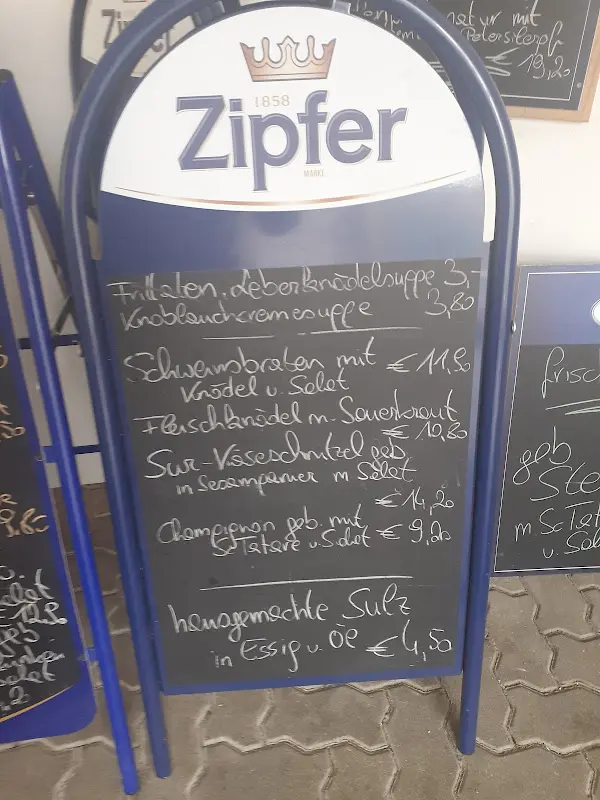 natur mit
Petersilerpf
€ 19,20
1858
Zipfer
MARKE
Frittaten, Leberknödelsuppe 3,-
Knoblauchcremesuppe 3,80
Schweinsbraten mit € 11,90
Knödel u. Salat
Fleischknödel m. Sauerkraut
€ 10,80
Sur-Käseschnitzel geb.
in Sesampanier m Salat
€ 14,20
Champignon geb. mit
Sc Tatare u. Salat € 9,20
hausgemachte Sulz
in Essig u. Öl € 4,50
frisch
geb
m Sc Tat
u. Sal